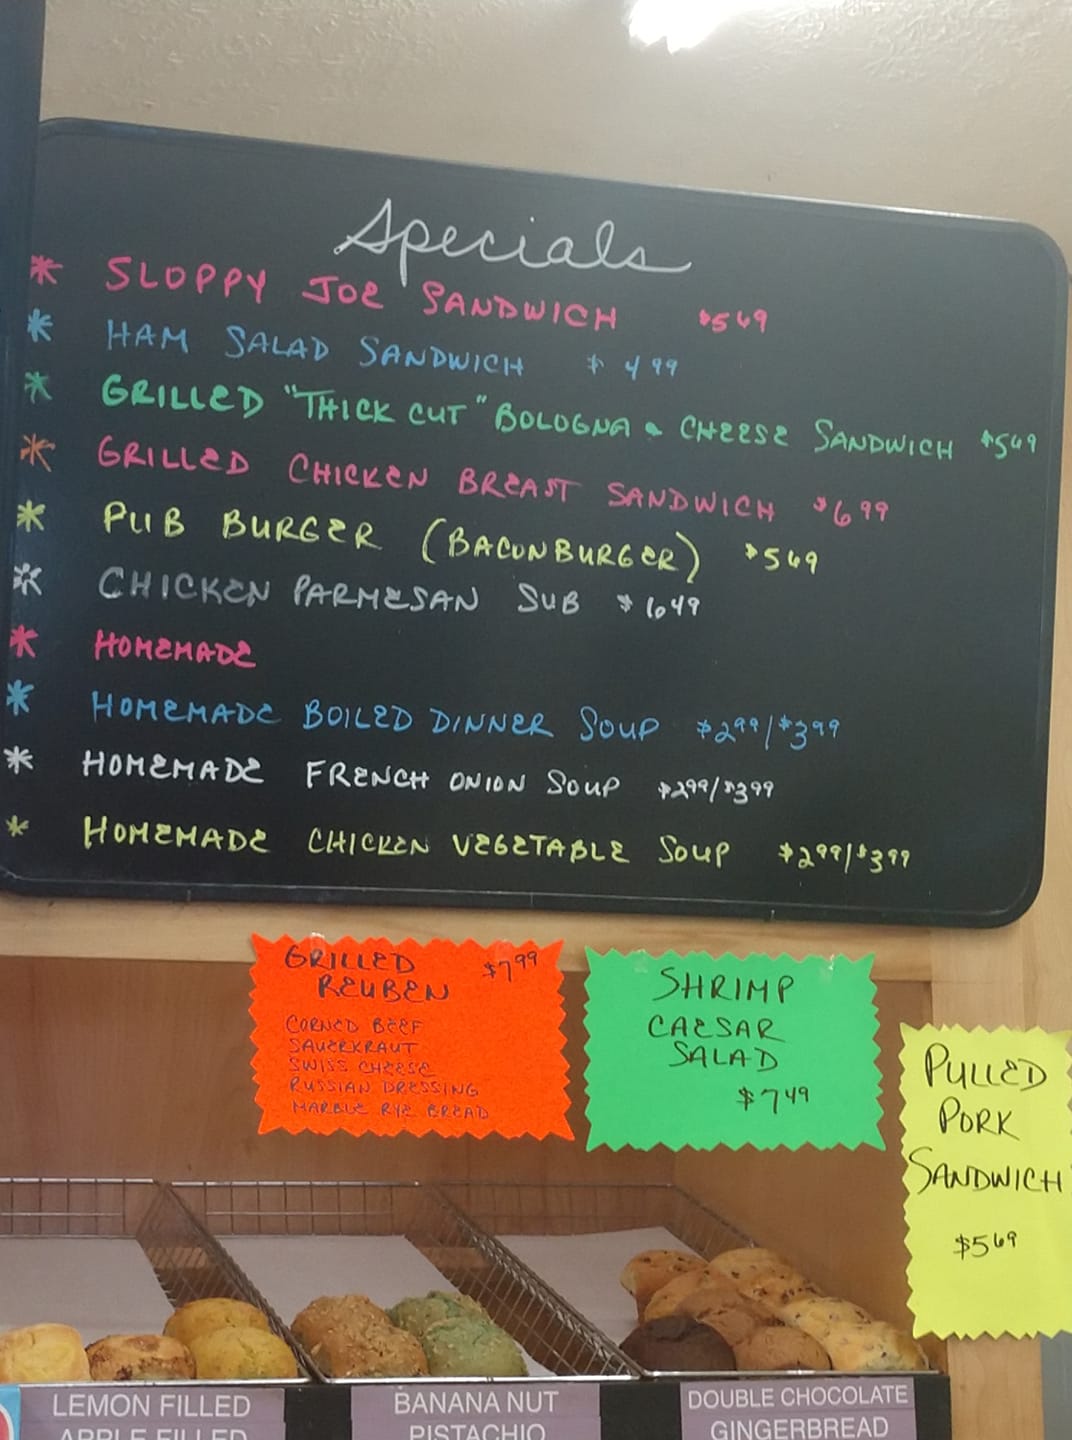 Specials
* SLOPPY JOE SANDWICH $5 69
* HAM SALAD SANDWICH $ 4 99
* GRILLED "THICK CUT" BOLOGNA & CHEESE SANDWICH $5 69
* GRILLED CHICKEN BREAST SANDWICH $6 99
* PUB BURGER (BACONBURGER) $5 69
* CHICKEN PARMESAN SUB $6 49
* HOMEMADE
* HOMEMADE BOILED DINNER SOUP $2 99/$3 99
* HOMEMADE FRENCH ONION SOUP $2 99/$3 99
* HOMEMADE CHICKEN VEGETABLE SOUP $2 99/$3 99
GRILLED $7 99
REUBEN
CORNED BEEF
SAUERKRAUT
SWISS CHEESE
RUSSIAN DRESSING
MARBLE RYE BREAD
SHRIMP
CAESAR
SALAD
$7 49
PULLED
PORK
SANDWICH
$5 69
LEMON FILLED
APPLE FILLED
BANANA NUT
PISTACHIO
DOUBLE CHOCOLATE
GINGERBREAD